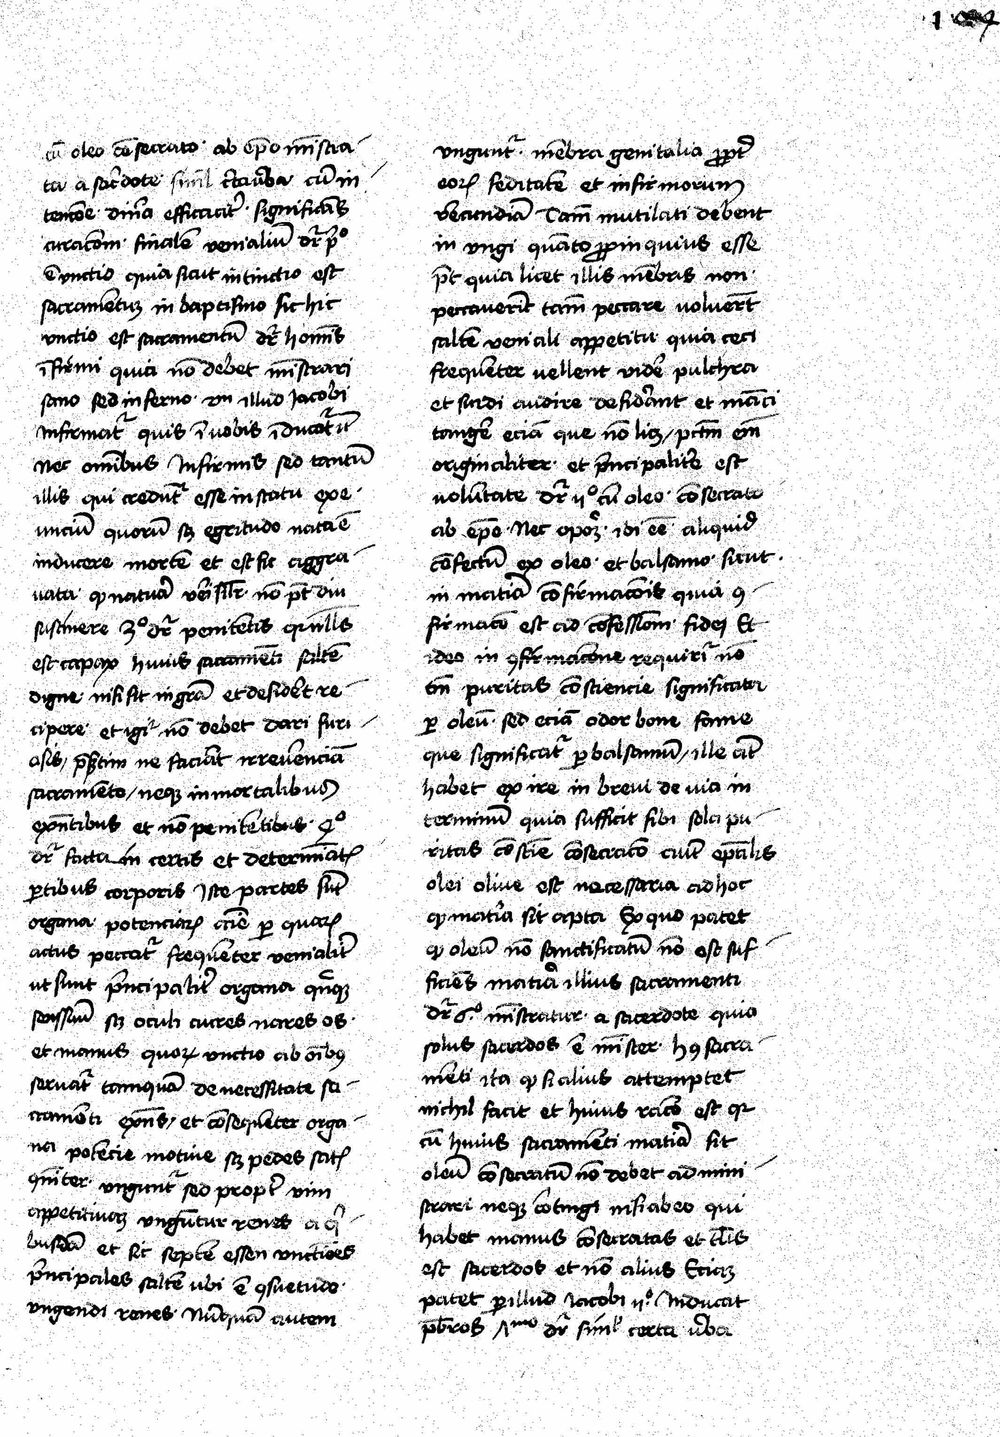 cū oleo cōsecrato ab ep̄o mīstra
ta a sac̄dote simł c̄ta ūba cū in
tencōe diūa efficacit̄ significās
curacōm finalē venialiū dr̄ p̄º
ē vnctio quia sicut intinctio est
sacramētuʒ in baptismo sic hic
vnctio est sacramentū dr̄ homīs
īfirmi quia nō debet mīstrari
sano sed infermo vn illud Jacobi
Infirmat̄ quis ī vobis īducat īt̄
Nec omībus Infirmis sed tantū
illis qui credūt̄ esse in statu exe
unciū quorū sʒ egritudo nata ē
inducere mortē et est sic aggra
uata ꝙ natura v̄esil̄r nō pōt diu
sustinere 3º dr̄ penitētis qr nll̄s
est capax huius sacramēti saltē
digne nisi sit in gr̄a et desider̄t re
cipere et igiᵗ nō debet dari furi
osis, p̄s̄tim ne faciāt irreuēnciā
sacramēto, neqʒ in mortalibus
exn̄tibus et nō penitētibus 4º
dr̄ facta in certis et determīatꝭ
ꝑtibus corporis Iste partes sūt
organa potenciaꝝ aīe ꝑ quaꝝ
actus peccat̄ frequēter venialit̄
ut sunt p̄ncipalit̄ organa qn̄qʒ
sensuū sʒ oculi aures nares os
et manus quoꝝ vnctio ab oībꝯ
seruat̄ tamquā de necessitate sa
cramēti exn̄s, et cōsequēter orga
na potēcie motiue sʒ pedes
vngunt̄ sed propt̄ vim
appetitiuaʒ vngūtur renes a qⁱ
busdā et sic septē essen vnctiōēs
p̄ncipales saltē ubi ē ꝯsuetudo
vngendi renes Nūquā autem
vngunt̄ mēbra genitalia ꝓpt̄
eoꝝ feditatē et infirmorum
v̄ecundiā Tam̄ mutilati debent
in ungi quāto ꝓpinquius esse
pōt quia licet illis mēbris non
peccauerīt tam̄ peccare voluerūt
saltē veniali appetitu quia ceci
frequēter uellent vidē pulchra
et surdi audire desiderāt et māci
tangē eciā que nō licʒ, pctm̄ em̄
originaliter et p̄ncipalitē est
volūtate dr̄ ııº cū oleo cōsecrato
ab ep̄o Nec opoʒ ibi eē aliquid
cōfectū ex oleo et balsamo sicut
in matiā cōfirmacōis quia ꝯ
firmacō est ad cōfessiōm fidei Et
ideo in ꝯfirmacōne requiriᵗ nō
t̄m puritas cōsciencie significata
ꝑ oleū sed eciā odor bone fame
que significat̄ ꝑ balsamū, ille aūt
habet exire in breui de uia in
terminū quia sufficit sibi sola pu
ritas cōsciē cōsecracō aut̄ ep̄alis
olei oliue est necessaria ad hoc
ꝙ matia sit apta Ex quo patet
ꝙ oleū nō sanctificatū nō est suf
ficiēs matia illius sacramenti
dr̄ 6º mīstratur a sacerdote quia
solus sacerdos ē mīster hꝯ sacra
mēti ita ꝙ si alius attemptet
nichil facit et huius racō est qr
cū huius sacramēti matia sit
oleū cōsecratū nō debet admini
strari neqʒ cōtingi nisi ab eo qui
habet manus cōsecratas et tl̄is
est sacerdos et nō alius Eciaʒ
patet ꝑ illud Iacobi ııº Inducat
p̄bros dr̄ simł certa ūba